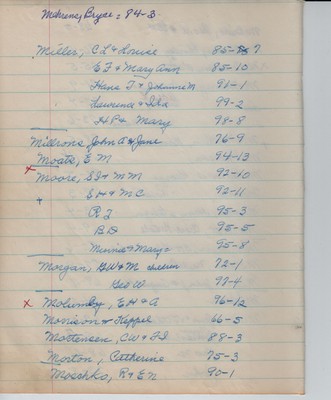 Bryce = 84-3
Miller, C L & Louise 85-7
E F & Mary Ann 85-10
Hans T & 96-1
Lawrence & Ida 99-2
H P & Mary 98-8
Millrons, John A & Jane 76-9
Moats, E M 94-13
Moore, S S & M M 92-10
E H & M C 92-11
R J 95-3
B D 95-5
Minnie & Mary = 95-8
Morgan, G W & M 72-1
Geo W 97-4
Molumby, E H & A 96-12
& Keppel 66-5
Mortensen, C W & 88-3
Morton, Catherine 75-3
Moschko, R & E N 90-1